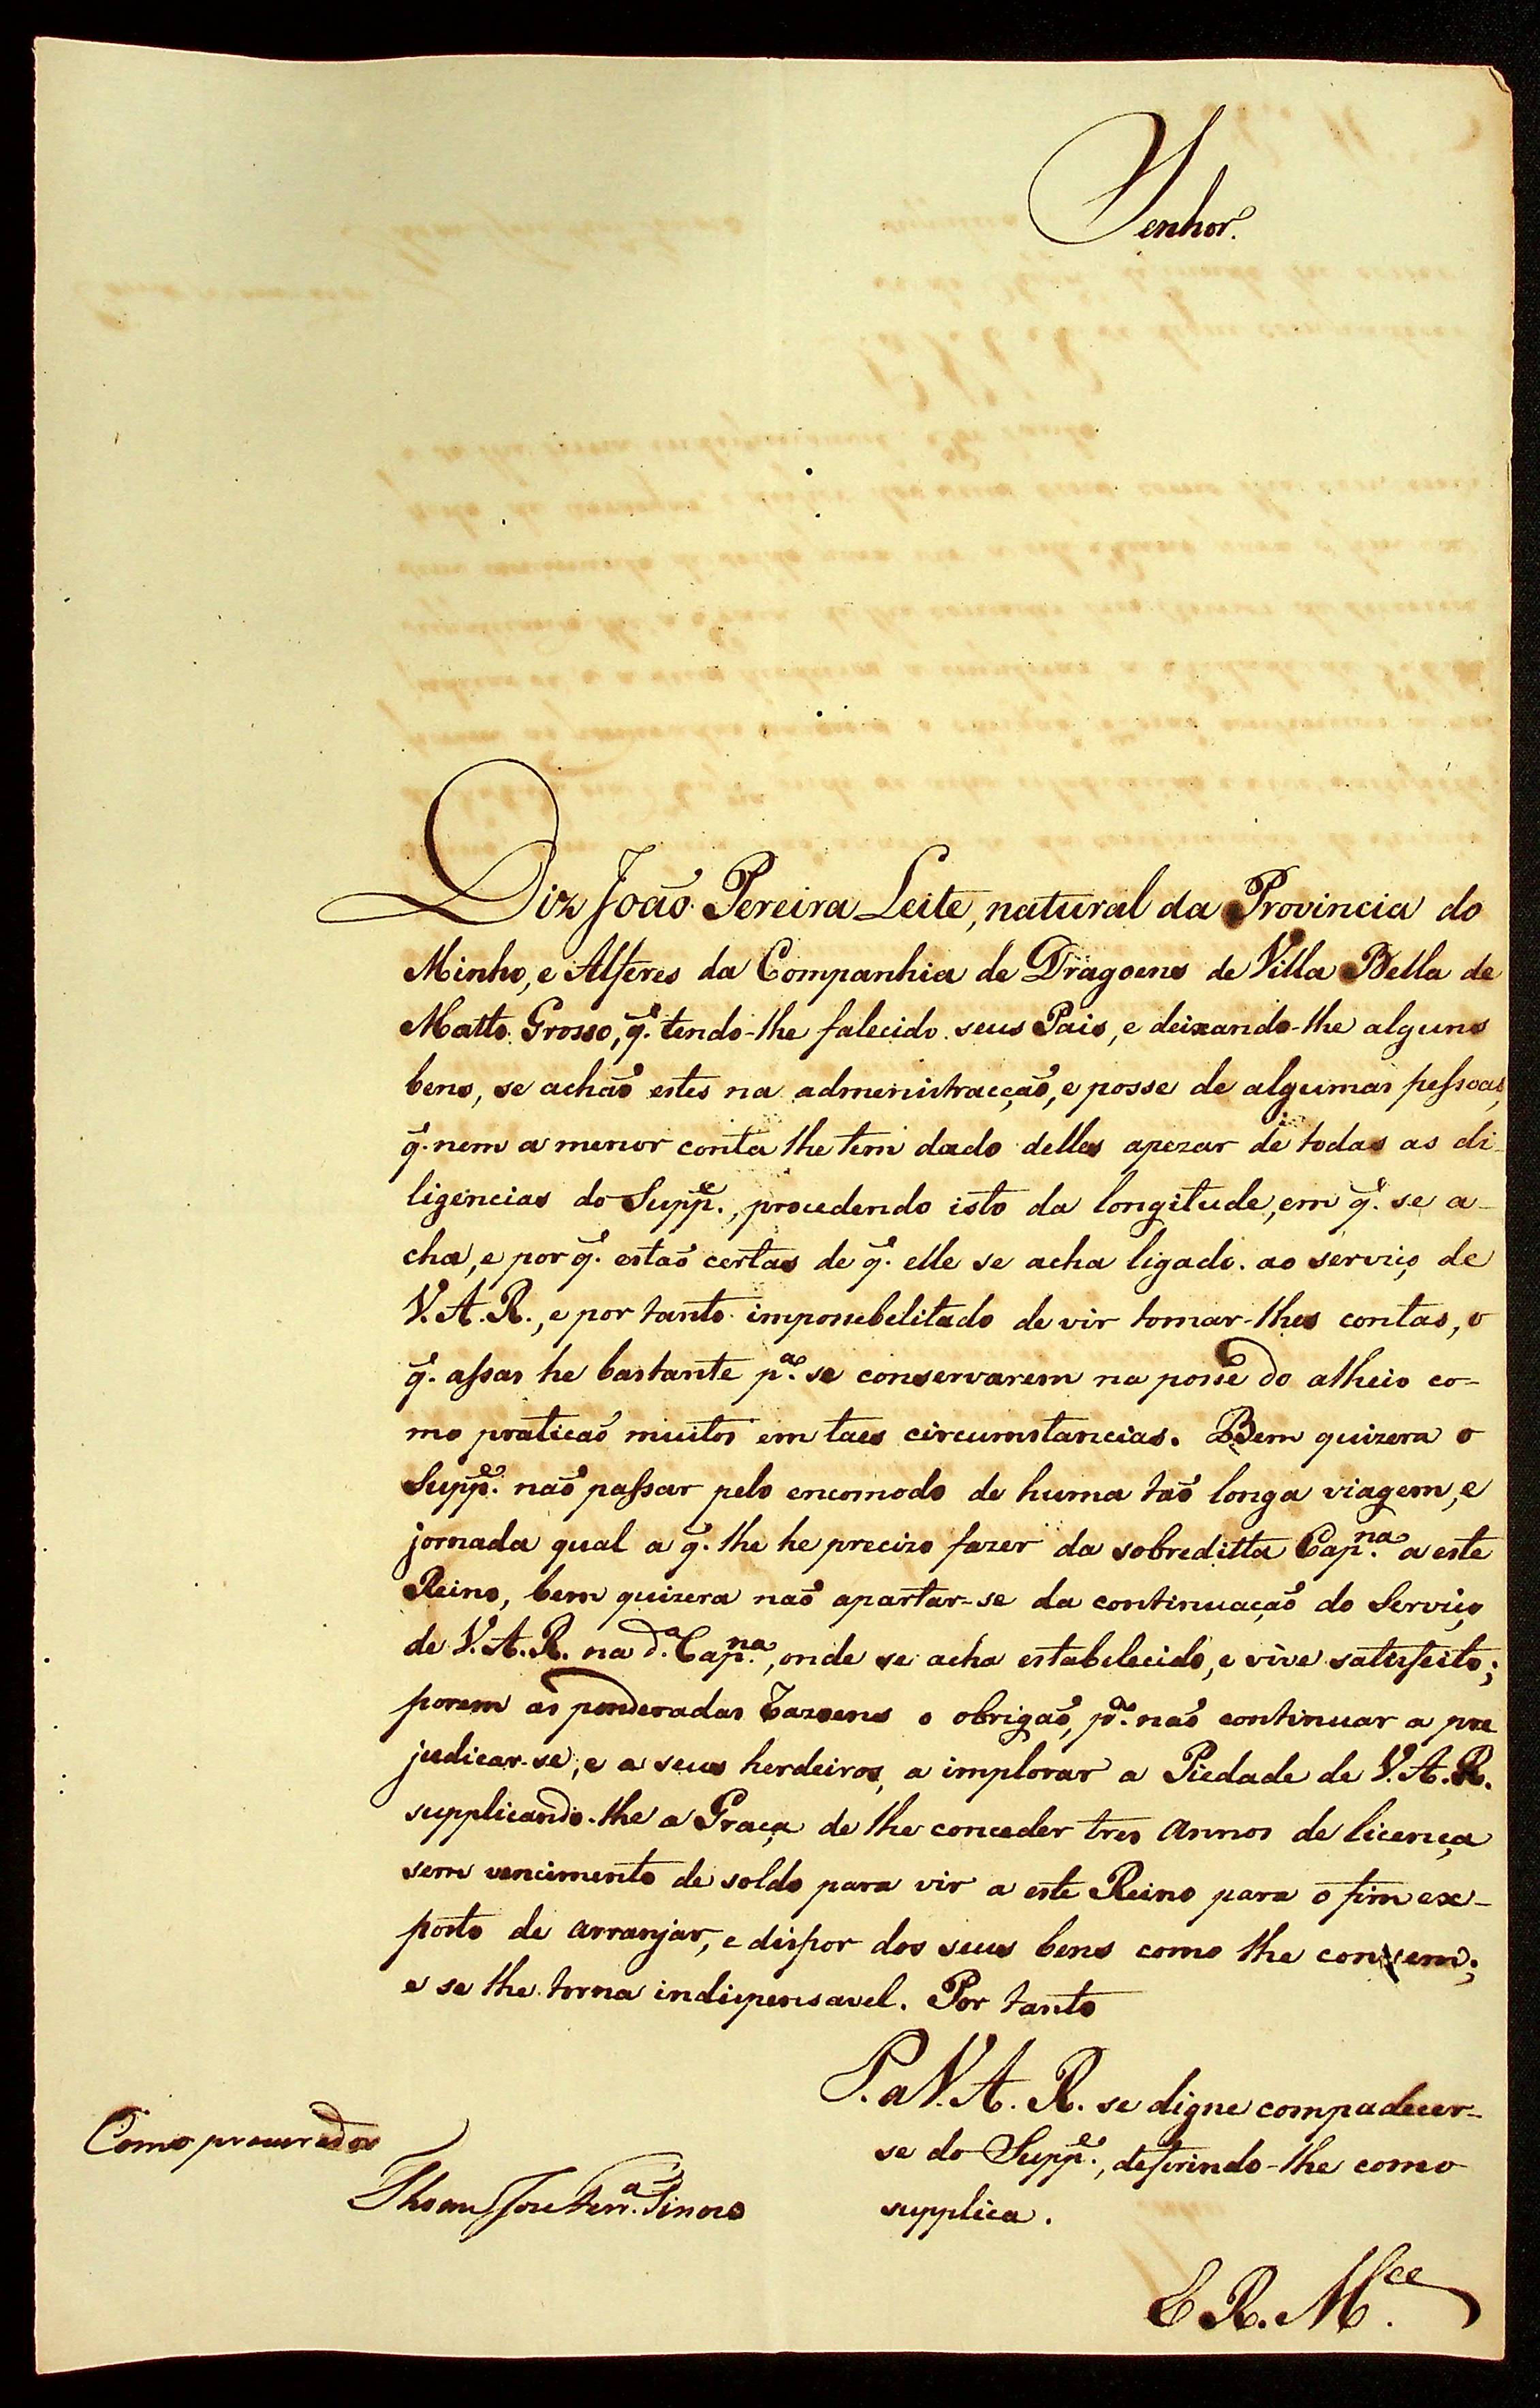 Senhor.
Diz João Pereira Leite, natural da Provincia do
Minho, e Alferes da Companhia de Dragoens de Villa Bella de
Matto Grosso, q̃. tendo-lhe falecido seus Pais, e deixando-lhe alguns
bens, se achaõ estes na admenistracçaõ, e posse de algumas peſsoas,
q̃. nem a menor conta lhe tem dado delles apezar de todas as di-
ligencias do Supp.e, procedendo isto da longitude, em q̃. se a-
cha, e por q̃. estaõ certas de q̃. elle se acha ligado ao serviço de
V. A. R., e por tanto impossebelitado de vir tomar-lhes contas, o
q̃. aſsas he bastante p.a se conservarem na posse do alheio co-
mo praticaõ muitos em taes circumstancias. Bem quizera o
Supp.e naõ paſsar pelo encomodo de huma taõ longa viagem, e
jornada qual a q̃. lhe he precizo fazer da sobreditta Cap.na a este
Reino, bem quizera naõ apartar-se da continuaçaõ do Serviço
de V. A. R. na d.a Cap.na, onde se acha estabelecido, e vive satisfeito;
porem as ponderadas razoens o obrigaõ, p.a naõ continuar a pre
judicar-se, e a seus herdeiros, a implorar a Piedade de V. A. R.
supplicando-lhe a Graça de lhe conceder tres annos de licença
sem vencimento de soldo para vir a este Reino para o fim ex-
posto de arranjar, e dispor dos seus bens como lhe convem;
e se lhe torna indispensavel. Por tanto
P. a V. A. R. se digne compadecer-
se do Supp.e, deferindo-lhe como
supplica.
Como procurador
E R. M.ce